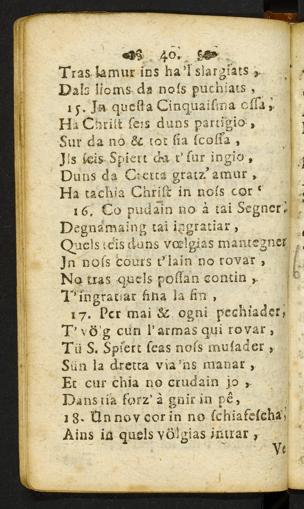 40.
Tras lamur ins ha'l slargiats,
Dals lioms da noss puchiats,
15. Jn questa Cinquaisma ossa,
Ha Christ seis duns partigio,
Sur da no & tot sia scossa,
Jls seis Spiert da t'sur ingio,
Duns da Cretta gratz'amur,
Ha tachia Christ in noss cor
16. Co pudain no à tai Segner,
Degnamaing tai ingratiar,
Quels teis duns vœlgias mantegner
Jn noss cours t'lain no rovar,
No tras quels possan contin,
T'ingratiar fina la fin,
17. Per mai & ogni pechiader,
T'vö'g cun l'armas qui rovar,
Tü S. Spiert seas noss musader,
Sün la dretta via'ns manar,
Et cur chia no crudain jo,
Dans tia forz'à gnir in pê,
18. Ün nov cor in no schiafescha,
Ains in quels völgias intrar,
Ve